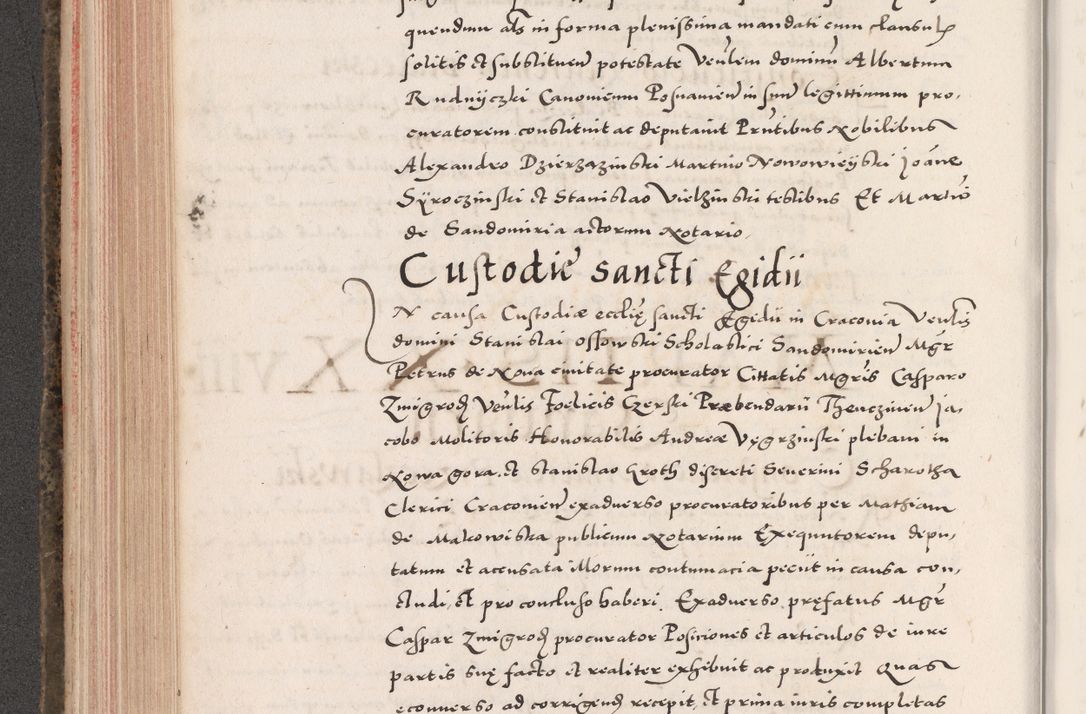 quendum als in forma plenissima mandati cum clausulis
solitis et substituen potestate Venlem dominum Albertum
Rudnyczki Canonicum Posnanien in suum legittimum pro,
curatorem constituit ac deputauit Prntibus Nobilibus
Alexandro Dzierzazinski Martino Nowowieyski Joane
Syroczinski et Stanislao Vielzinski testibus Et Martino
de Sandomiria actorum Notario.
Custodie sancti Egidii
IN causa Custodiæ ecclię sancti Egidii in Craconia Venlis
domini Stanislai Ossowski Scholastici Sandomirien Mgr
Petrus de Noua ciuitate procurator Cittatis Mgris Casparo
Zmigrod Venlis Foelicis Czerski Præbendarii Thenczinen Ja,
cobo Molitoris Honorabilis Andreæ Vęgrzinski plebani in
Nowa gora et Stanislao Groth discreti Seuerini Scharotha
Clerici Craconien exaduerso procuratoribus per Mathiam
de Makowiska publicum Notarium Exequutorem depu,
tatum et accusata illorum contumacia peciit in causa con,
cludi, et pro concluso haberi. Exaduerso pręfatus Mgr
Caspar Zmigrod procurator Posiciones et articulos de iure
partis suę facto et realiter exhibuit ac produxit Quas
econuerso ad corrigend recepit, Et prima iuris completas